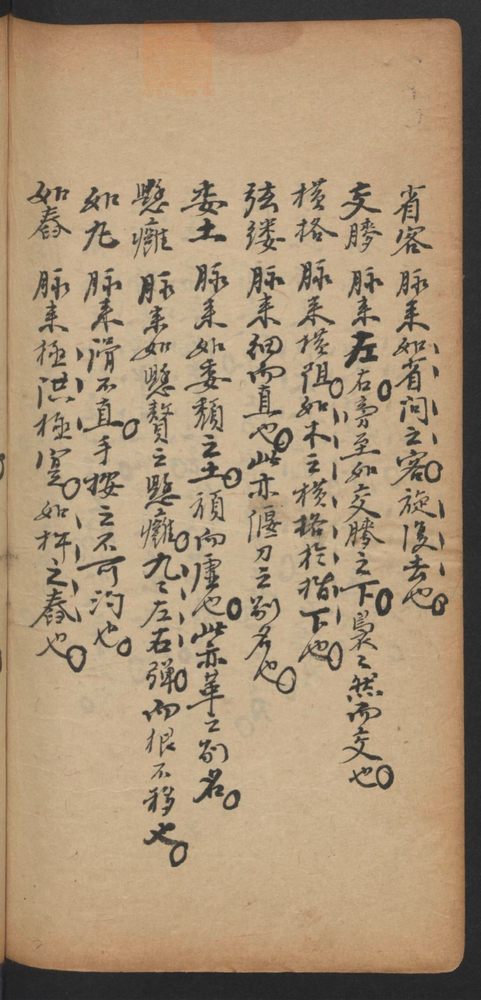 省客 脈來如省問之客。旋復去也。
交縢 脈來左右。旁至如交縢之下。裊〻然而交也。
橫格 脈來橫阻。如木之橫格於指下也。
弦縷 脈來細而直也。此亦偃刀之别名也。
委土 脈來如委頹之土。頹而虛也。此亦革之别名。
懸癰 脈來如懸贅之懸癰。丸〻左右彈。而根不移也。
如丸 脈來滑不直。手按之不可得也。
如舂 脈來極洪極實。如杵之舂也。